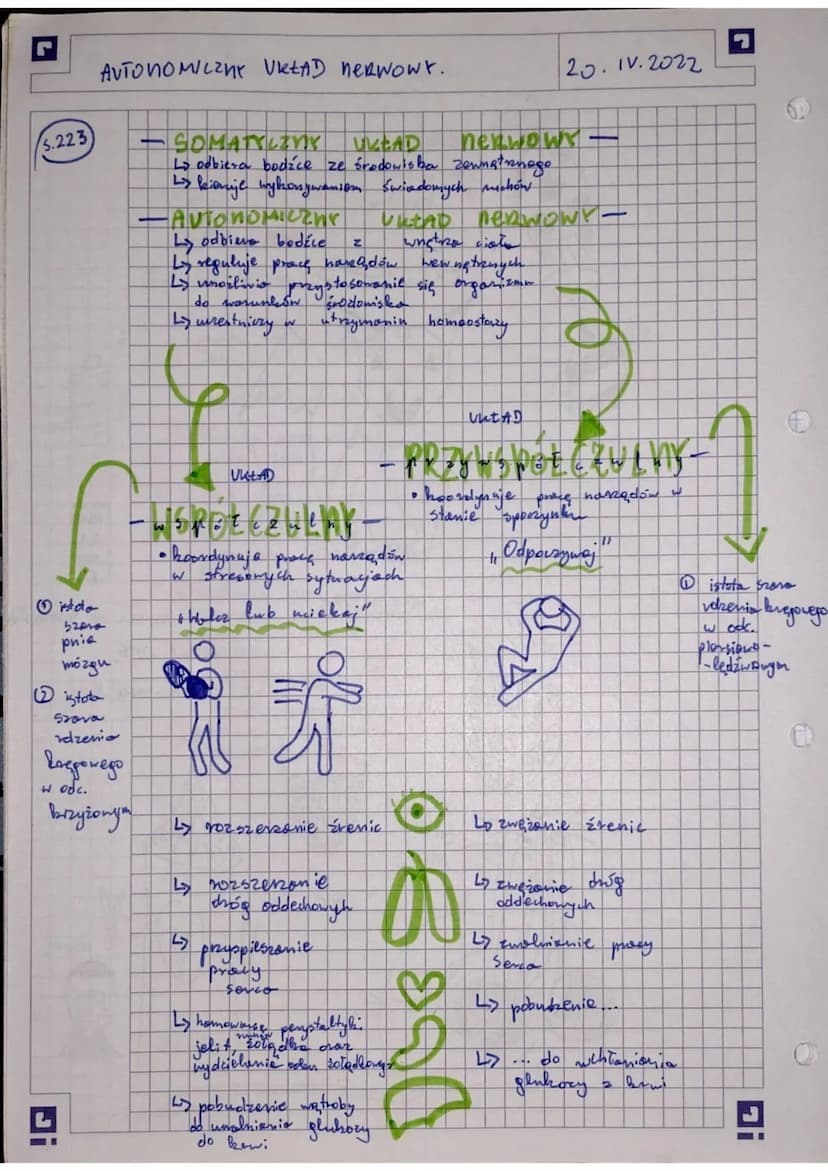 AUTONOMICZNY UKŁAD NERWOWY.
20. IV. 2022
s.223
— SOMATYCZNY UKŁAD NERWOWY —
↳ odbiera bodźce ze środowiska zewnętrznego
↳ kieruje wykonywaniem świadomych ruchów
— AUTONOMICZNY UKŁAD NERWOWY —
↳ odbiera bodźce z wnętrza ciała
↳ reguluje pracę narządów wewnętrznych
↳ umożliwia przystosowanie się organizmu
do warunków środowiska
↳ uczestniczy w utrzymaniu homeostazy
UKŁAD
— WSPÓŁCZULNY —
• koordynuje pracę narządów
w stresowych sytuacjach
„Walcz lub uciekaj"
① istota
szara
pnia
mózgu
② istota
szara
rdzenia
kręgowego
w odc.
krzyżowym
UKŁAD
— PRZYWSPÓŁCZULNY —
• koordynuje pracę narządów w
stanie spoczynku
„Odpoczywaj"
① istota szara
rdzenia kręgowego
w odc.
piersiowo-
-lędźwowym
↳ rozszerzanie źrenic
↳ zwężanie źrenic
↳ rozszerzanie
dróg oddechowych
↳ zwężanie dróg
oddechowych
↳ przyspieszanie
pracy
serca
↳ zwolnienie pracy
serca
↳ hamowanie perystaltyki
jelit, ruchów żołądka oraz
wydzielanie soku żołądkowego
↳ pobudzenie...
↳ pobudzenie wątroby
do uwalniania glukozy
do krwi
↳ ... do wchłaniania
glukozy z krwi